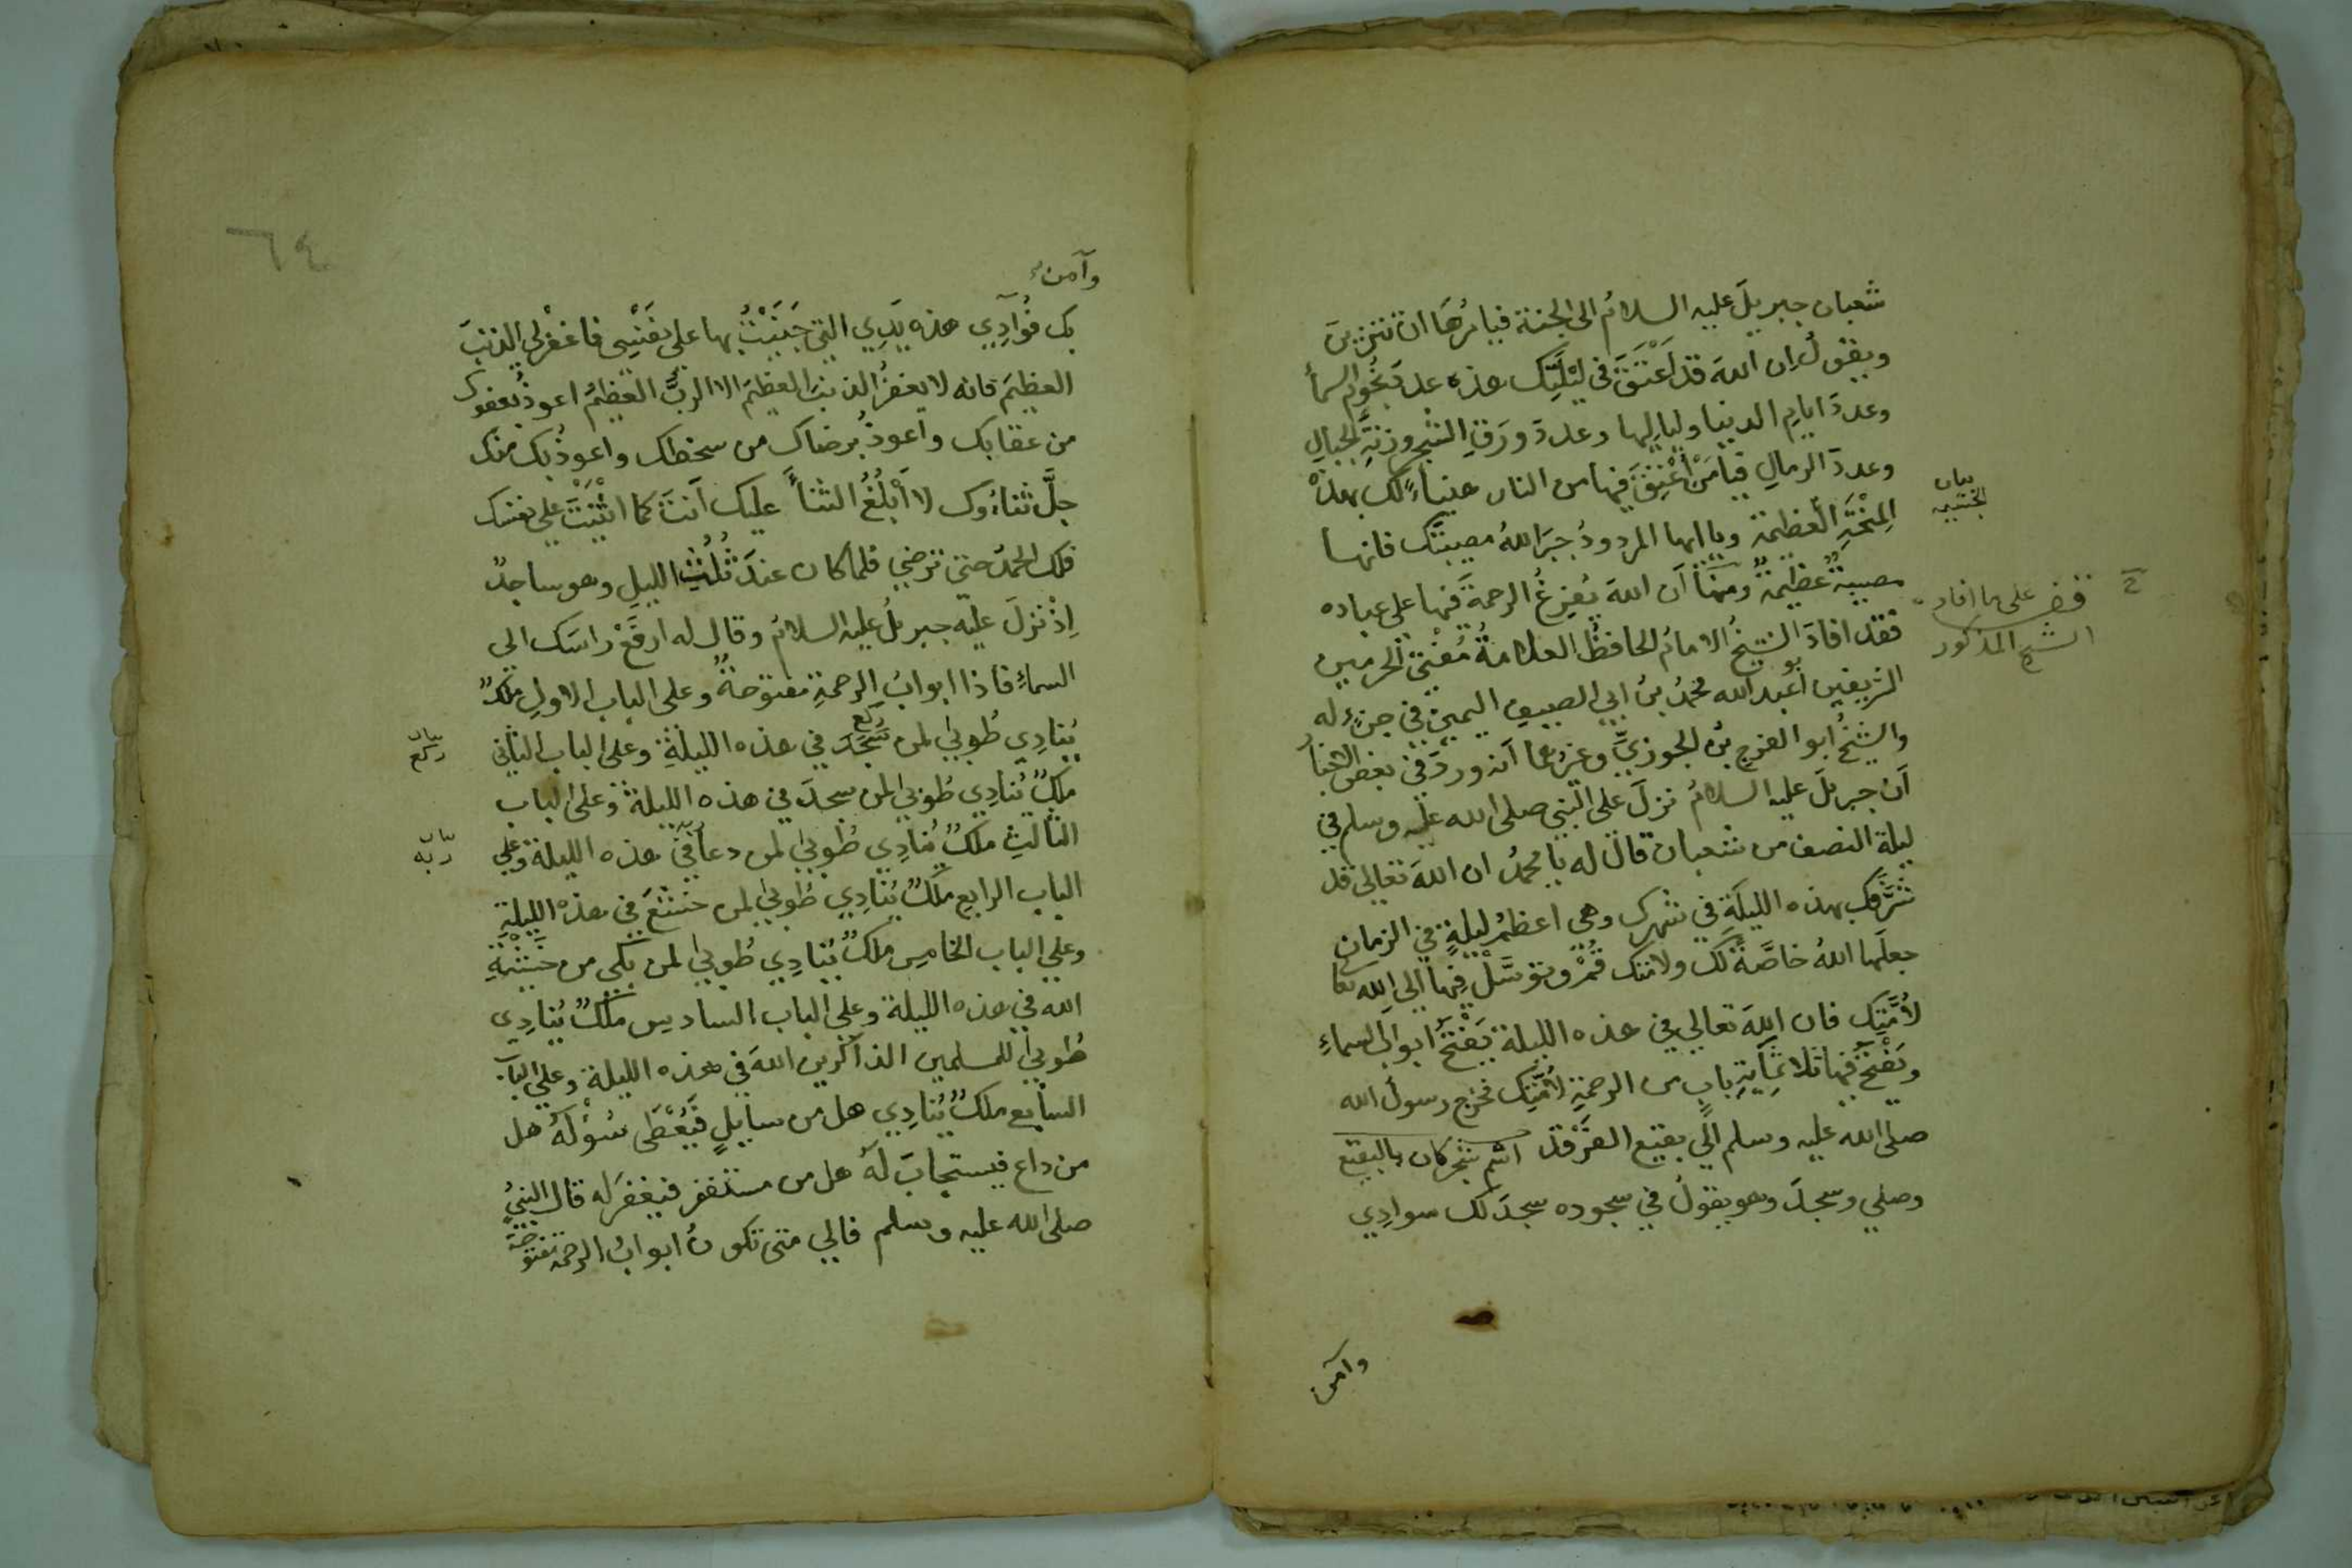 شعبان جبريلَ عليه السلامُ الى الجنة فيامُرُهَا ان تتزيّنَ
ويقولُ ان اللهَ قد اَعْتَقَ في ليْلَتِك هذه عددَ نجُومِ السمأ
وعددَ ايامِ الدنيا ولياليها وعددَ ورَقِ الشجرِ وزنةِ الجبالِ
وعددَ الرمالِ فيا مَنْ اُعْتِقَ فيها من النار هنياءً لك بهذه
المِنْحَةِ العظيمة ويا ايها المردودُ جبرَ اللهُ مصيبتَك فانها
مصيبةٌ عظيمةٌ ومنها اَن اللهَ يُفرِغُ الرحمةَ فيها على عباده
فقد افادَ الشيخُ الامامُ الحافظُ العلامةُ مُفْتِيُ الحرمين
الشريفين ابو عبد الله محمدُ بنُ ابي الصيف اليمنيّ في جزءٍ له
والشيخُ ابو الفرجِ بنُ الجوزيِّ وغيرُهما اَنه وردَ في بعض الاخبارِ
اَن جبريلَ عليه السلامُ نزلَ على النبي صلى الله عليه وسلم في
ليلة النصف من شعبان قال له يا محمدُ ان اللهَ تعالى قد
شَرَّفَك بهذه الليلَةِ في شهرك وهي اعظمُ ليلةٍ في الزمان
جعلَها اللهُ خاصَّةً لك ولامتك قُمْ وتوسَّلْ فيها الى الله تعا
لأُمَّتِك فان اللهَ تعالى في هذه الليلة يَفْتَحُ ابوابَ السماءِ
ويَفْتَحُ فيها ثلاثَمِايَةِ بابٍ من الرحمةِ لأُمَّتِك فخرج رسولُ الله
صلى الله عليه وسلم الى بقيع الغَرْقَد اسم شجر كان بالبقيع
وصلي وسجدَ وهو يقولُ في سجوده سجدَ لك سوادِي
بيان
قف على ما افاد
الشيخ المذكور
وآمن
٦٤
وآمن
بك فؤادِي هذه يَدِي التي جَنَيْتُ بها على نفْسِي فاغفرْلي الذنبَ
العظيمَ فانه لا يغفرُ الذنبَ العظيمَ الا الربُّ العظيمُ اعوذُ بعفوك
من عقابك واعوذُ برضاك من سخطك واعوذُ بك منك
جلَّ ثناؤُك لا اَبْلُغُ الثناَ عليك اَنتَ كما اثْنَيْتَ على نفسك
فلك الحمدُ حتى ترضي فلما كان عندَ ثُلُثِ الليلِ وهو ساجدٌ
اِذْ نزلَ عليه جبريلُ عليه السلامُ وقال له ارفَعْ راسَك الي
السماءِ فاذا ابوابُ الرحمةِ مفتوحةٌ وعلى الباب الاولِ ملكٌ
يُنادِي طُوبيٰ لمن ركع في هذه الليلةِ وعلى الباب الثاني
ملكٌ يُنادِي طُوبيٰ لمن سجدَ في هذه الليلة وعلى الباب
الثالثِ ملكٌ يُنادِي طُوبيٰ لمن دعا في هذه الليلة وعلى
الباب الرابعِ ملكٌ يُنادِي طُوبيٰ لمن خشعَ في هذه الليلةِ
وعلي الباب الخامسِ ملكٌ يُنادِي طُوبيٰ لمن بكى من خَشْيَةِ
الله في هذه الليلة وعلي الباب السادسِ ملكٌ يُنادِي
طُوبيٰ للمسلمين الذاكرين اللهَ في هذه الليلة وعلى الباب
السابع ملكٌ يُنادِي هل من سايلٍ فيُعْطَى سُؤْلَهُ هل
من داع فيستجابَ لَهُ هل من مستغفر فيغفرَ له قال النبيُّ
صلى الله عليه وسلم فالي متى تكونُ ابوابُ الرحمة مفتوحة
بيان
ركع
بيان